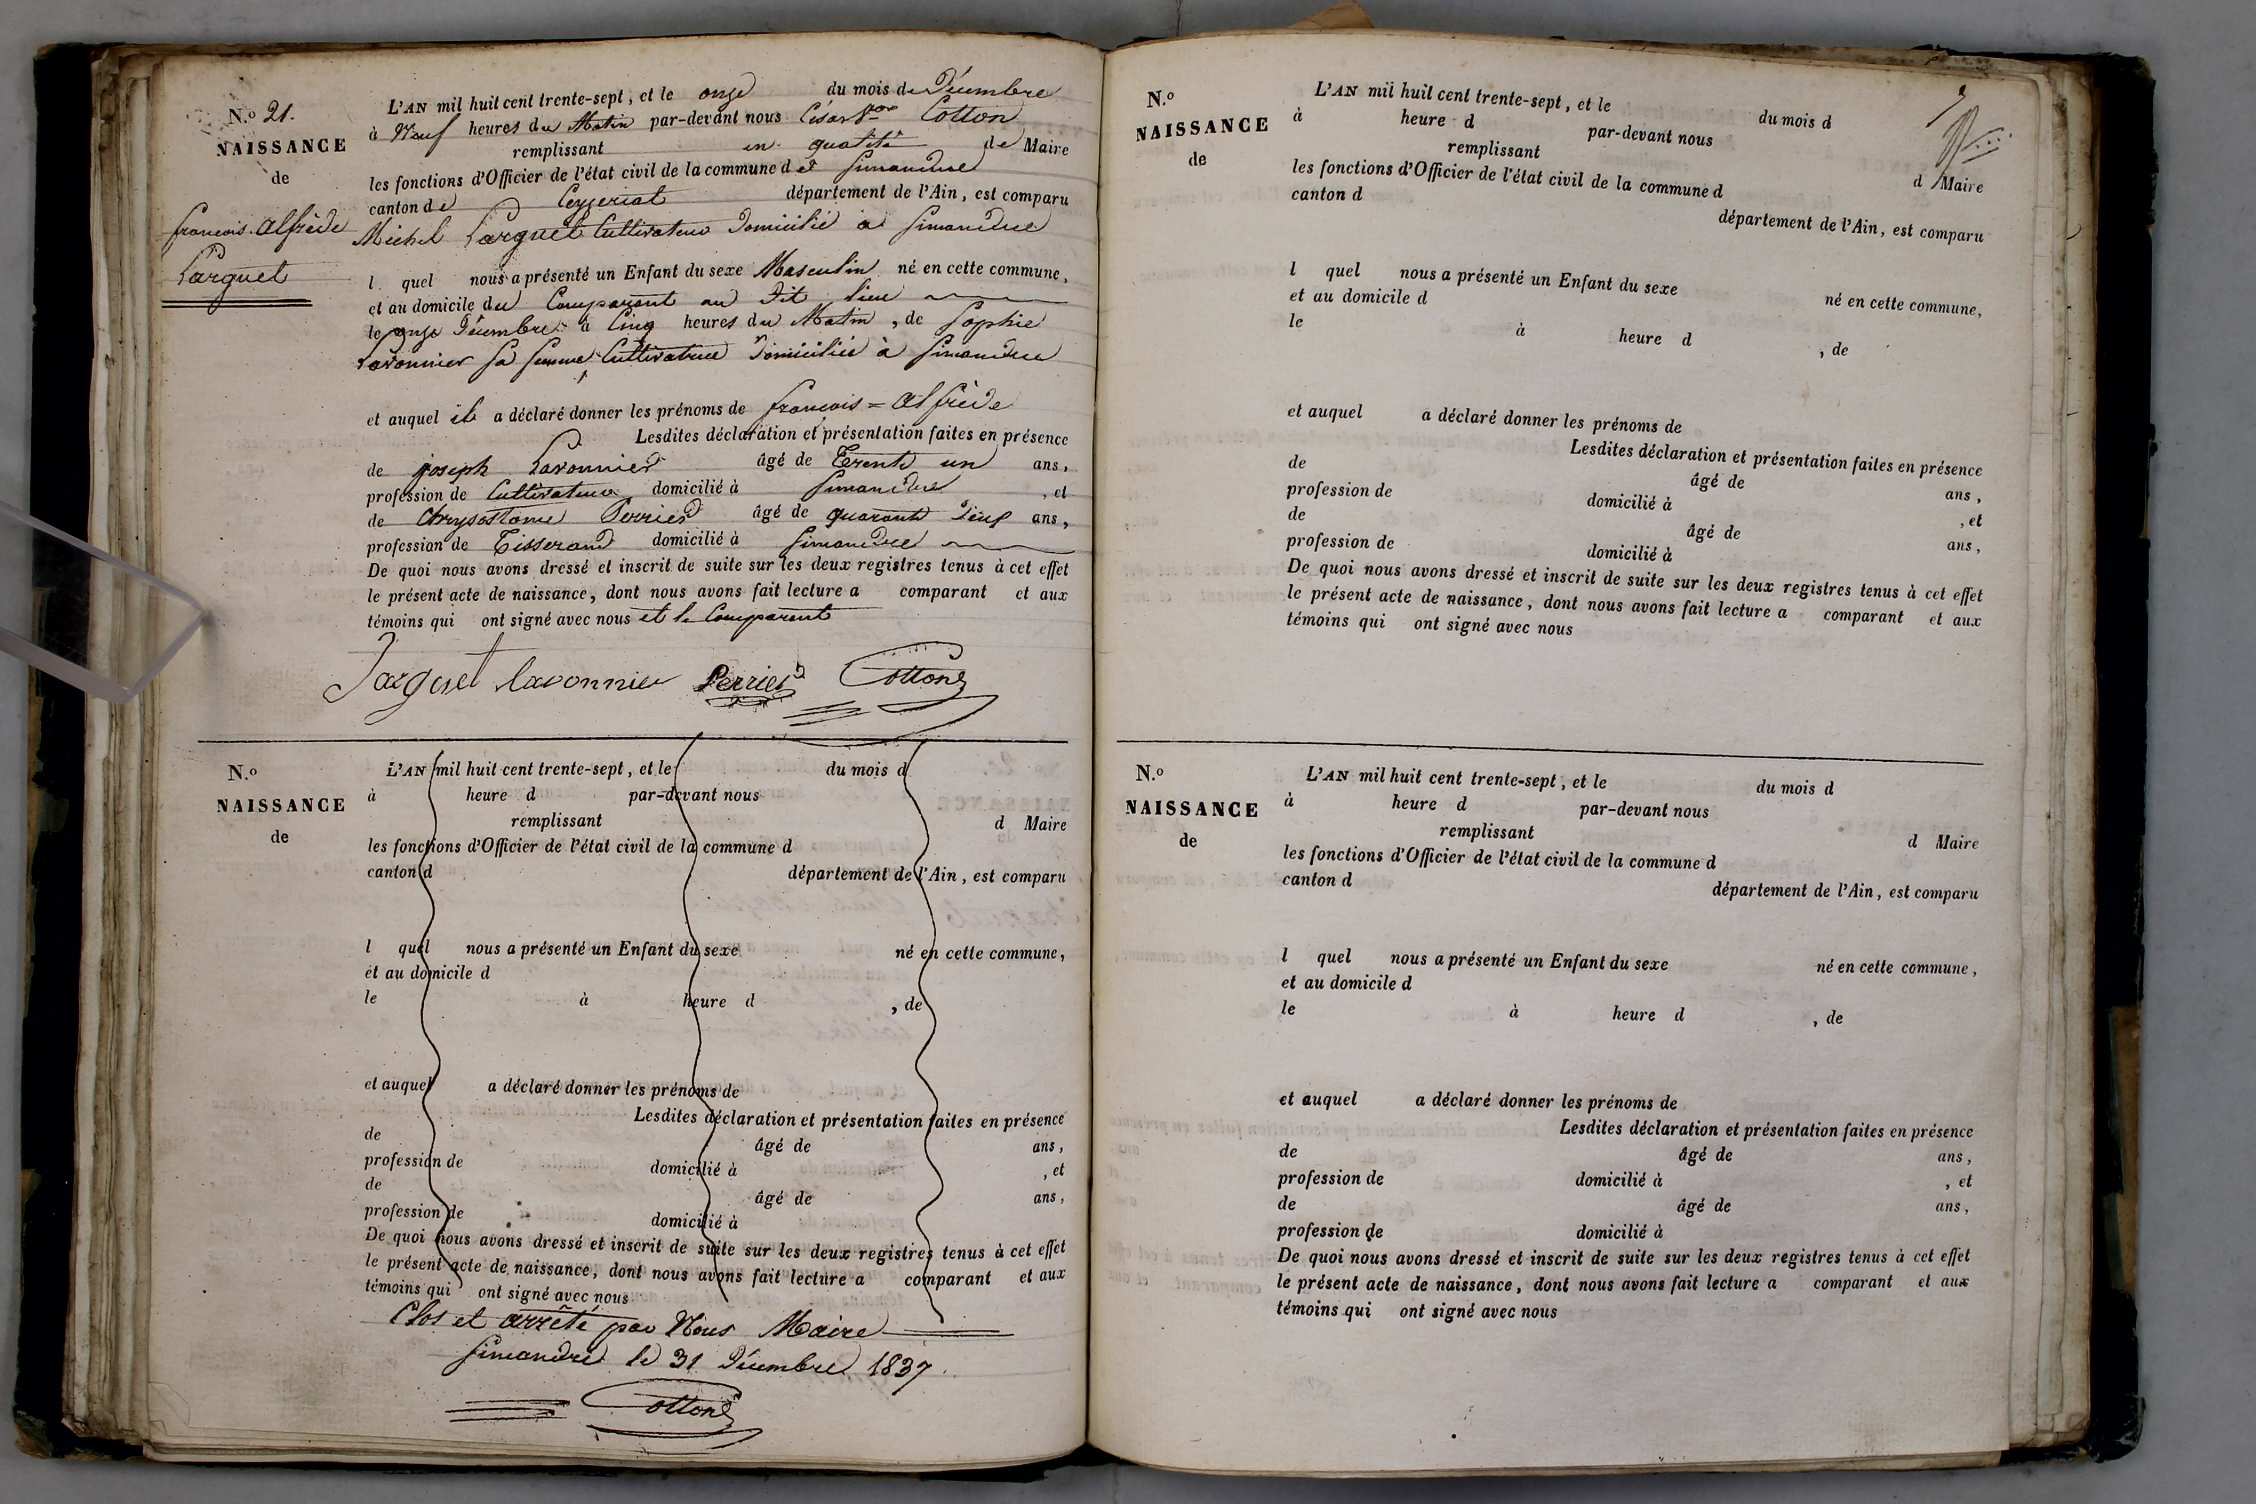 N.o 21.
NAISSANCE
de
françois-alfrède
Parguet
L'AN mil huit cent trente-sept, et le onze du mois de Décembre
à Neuf heures du Matin par-devant nous César Cotton
remplissant en qualité de Maire
les fonctions d'Officier de l'état civil de la commune de Simandre
canton de Ceyzeriat département de l'Ain, est comparu
Michel Parguet Cultivateur Domicilié à Simandre
l quel nous a présenté un Enfant du sexe Masculin né en cette commune,
et au domicile du Comparant au Dit lieu
le onze Décembre à Cinq heures du Matin, de Sophie
Lavonnier sa femme Cultivatrice Domiciliée à Simandre
et auquel il a déclaré donner les prénoms de françois=alfrède
Lesdites déclaration et présentation faites en présence
de joseph Lavonnier âgé de Trente un ans,
profession de Cultivateur domicilié à Simandre, et
de Chrysostome Perrier âgé de quarante Deux ans,
profession de Tisserand domicilié à Simandre
De quoi nous avons dressé et inscrit de suite sur les deux registres tenus à cet effet
le présent acte de naissance, dont nous avons fait lecture a comparant et aux
témoins qui ont signé avec nous et le Comparant
Parguet lavonnier Perrier Cotton
N.o
NAISSANCE
de
L'AN mil huit cent trente-sept, et le du mois d
à heure d par-devant nous
remplissant d Maire
les fonctions d'Officier de l'état civil de la commune d
canton d département de l'Ain, est comparu
l quel nous a présenté un Enfant du sexe né en cette commune,
et au domicile d
le à heure d , de
et auquel a déclaré donner les prénoms de
Lesdites déclaration et présentation faites en présence
de âgé de ans,
profession de domicilié à , et
de âgé de ans,
profession de domicilié à
De quoi nous avons dressé et inscrit de suite sur les deux registres tenus à cet effet
le présent acte de naissance, dont nous avons fait lecture a comparant et aux
témoins qui ont signé avec nous
Clos et arrêté par Nous Maire
Simandre le 31 Décembre 1837.
Cotton
N.o
NAISSANCE
de
L'AN mil huit cent trente-sept, et le du mois d
à heure d par-devant nous
remplissant d Maire
les fonctions d'Officier de l'état civil de la commune d
canton d département de l'Ain, est comparu
l quel nous a présenté un Enfant du sexe né en cette commune,
et au domicile d
le à heure d , de
et auquel a déclaré donner les prénoms de
Lesdites déclaration et présentation faites en présence
de âgé de ans,
profession de domicilié à , et
de âgé de ans,
profession de domicilié à
De quoi nous avons dressé et inscrit de suite sur les deux registres tenus à cet effet
le présent acte de naissance, dont nous avons fait lecture a comparant et aux
témoins qui ont signé avec nous
N.o
NAISSANCE
de
L'AN mil huit cent trente-sept, et le du mois d
à heure d par-devant nous
remplissant d Maire
les fonctions d'Officier de l'état civil de la commune d
canton d département de l'Ain, est comparu
l quel nous a présenté un Enfant du sexe né en cette commune,
et au domicile d
le à heure d , de
et auquel a déclaré donner les prénoms de
Lesdites déclaration et présentation faites en présence
de âgé de ans,
profession de domicilié à , et
de âgé de ans,
profession de domicilié à
De quoi nous avons dressé et inscrit de suite sur les deux registres tenus à cet effet
le présent acte de naissance, dont nous avons fait lecture a comparant et aux
témoins qui ont signé avec nous